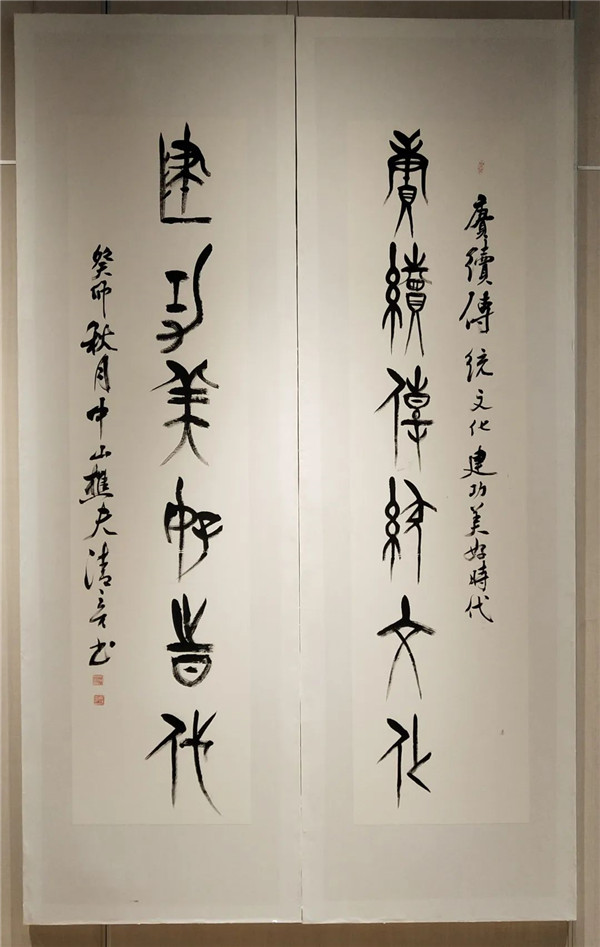 賡續傳統文化建功美好時代
賡續傳統文化
建功美好時代
癸卯秋月中山樵夫清音书